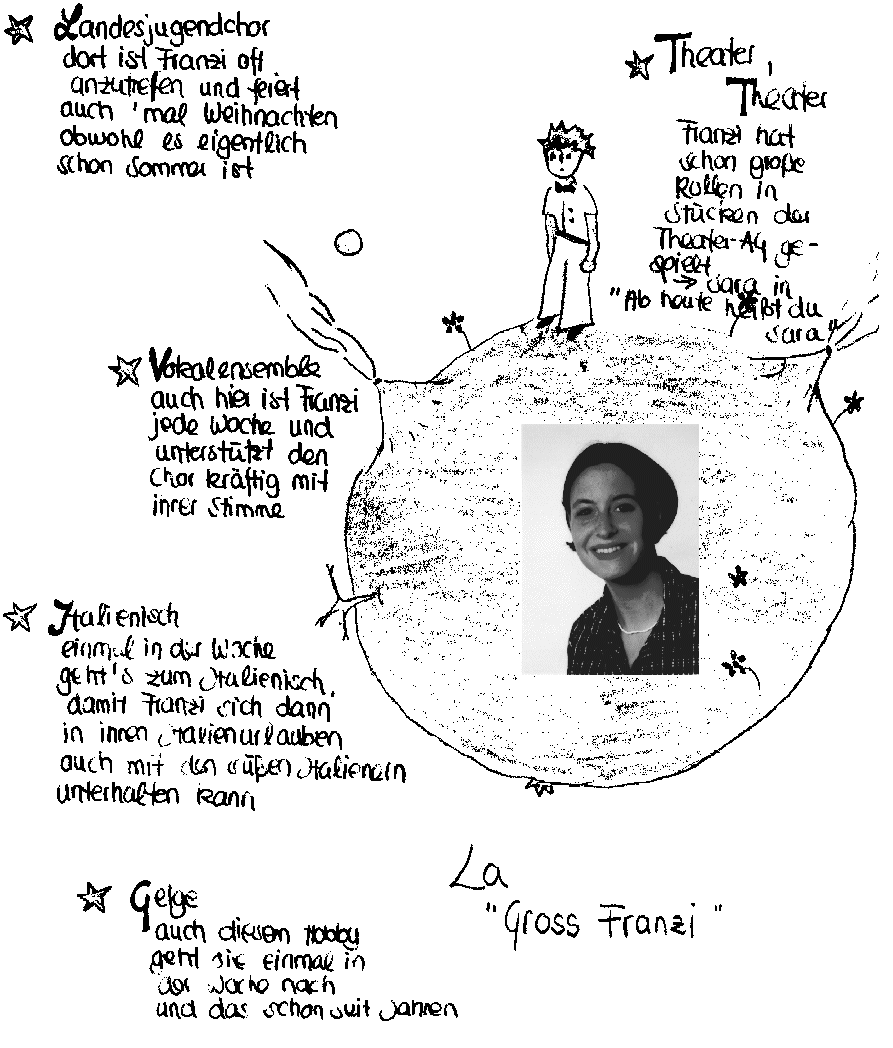 Landesjugendchor
dort ist Franzi oft
anzutrefen und feiert
auch 'mal Weihnachten
obwohl es eigentlich
schon Sommer ist
Theater,
Theater
Franzi hat
schon große
Rollen in
Stücken der
Theater-AG ge-
spielt
→ Sara in
"Ab heute heißt du
Sara"
Vokalensemble
auch hier ist Franzi
jede Woche und
unterstützt den
Chor kräftig mit
ihrer Stimme
Italienisch
einmal in der Woche
geht's zum Italienisch,
damit Franzi sich dann
in ihren Italienurlauben
auch mit den süßen Italienern
unterhalten kann
Geige
auch diesem Hobby
geht sie einmal in
der Woche nach
und das schon seit Jahren
La
"Gross Franzi"